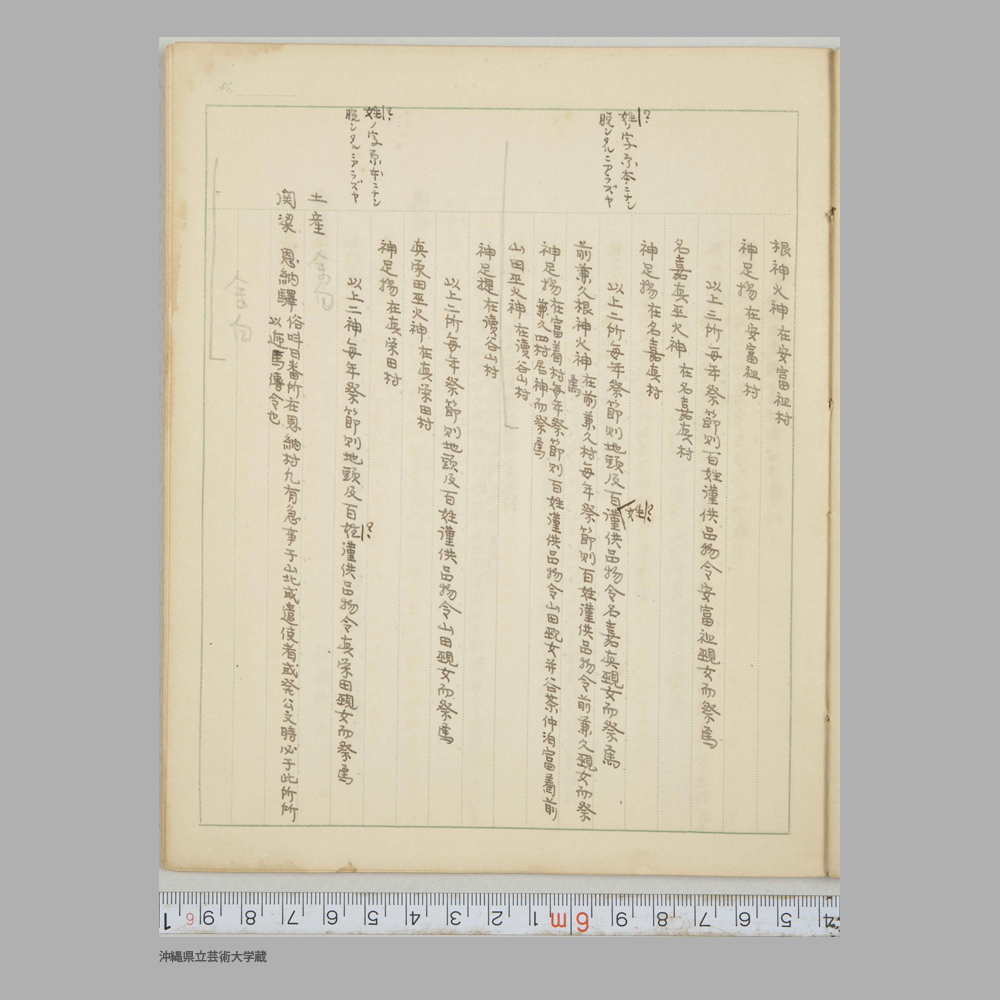 根神火神 在安富祖村
神足揚 在安富祖村
以上二所毎年祭節則百姓謹供品物令安富祖覡女而祭焉
名嘉真巫火神 在名嘉真村
神足揚 在名嘉真村
姓ノ字原本ニナシ
脱シタルニアラズヤ
以上二所毎年祭節則地頭及百謹供品物令名嘉真覡女而祭焉
姓?
前兼久根神火神 在前兼久村毎年祭節則百姓謹供品物令前兼久覡女而祭
焉
神足揚 在富着村毎年祭節則百姓謹供品物令山田覡女并谷茶仲泊富着前
兼久四村居神而祭焉
山田巫火神 在讀谷山村
神足揚 在讀谷山村
以上二所毎年祭節則地頭及百姓謹供品物令山田覡女而祭焉
真栄田巫火神 在真栄田村
神足揚 在真栄田村
姓ノ字原本ニナシ
脱シタルニアラズヤ
以上二神毎年祭節則地頭及百姓謹供品物令真栄田覡女而祭焉
土産
関梁 恩納驛 俗叫曰番所在恩納村凡有急事于山北或遣使者或発公文時必于此所所
以逓馬傳令也
No.
1 6 9 8 7 6 5 4 3 2 1 6m 9 8 7 6 5 4
沖縄県立芸術大学蔵